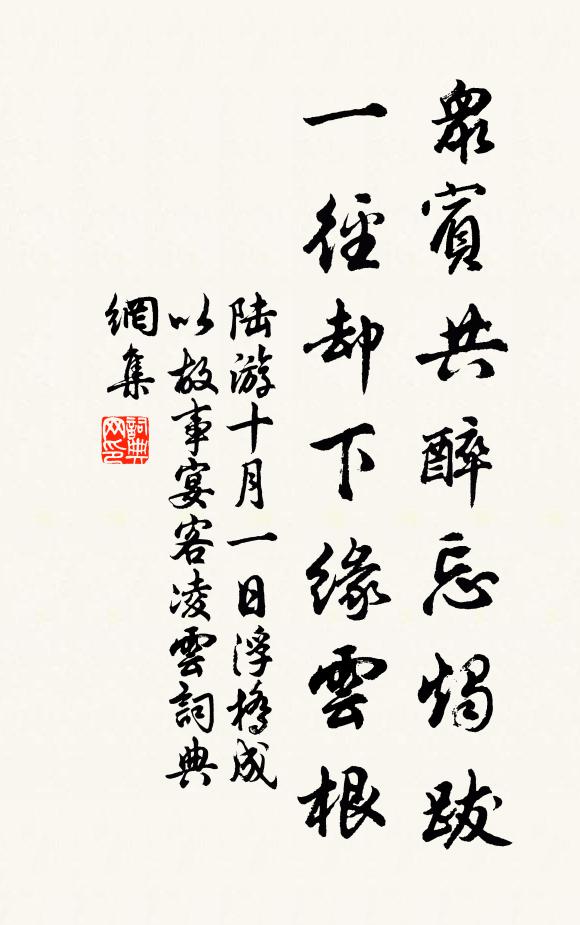 眾賓共醉忘燭跋
一徑却下緣雲根
陆游十月一日浮橋成
以故事宴客凌雲詞典
網集
詞典
网印